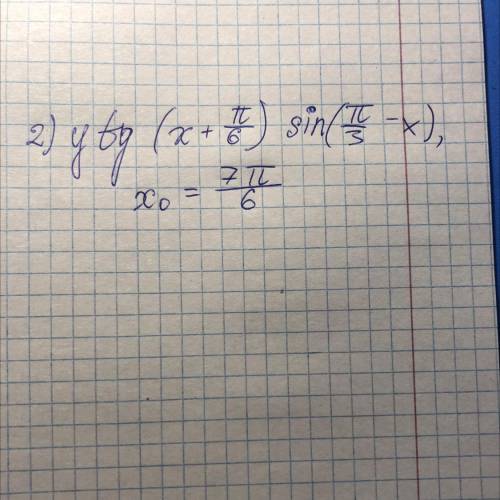 2) y tg (x + π/6) sin(π/3 - x),
x₀ = 7π/6